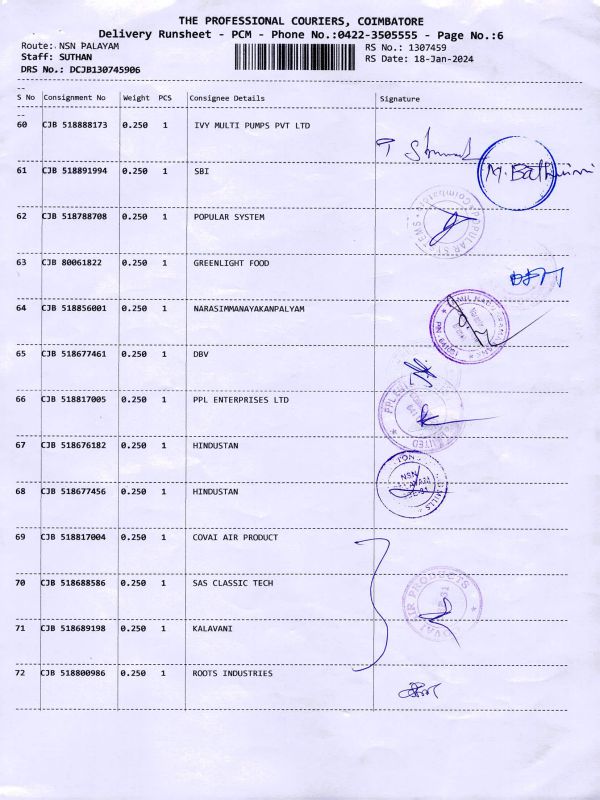 THE PROFESSIONAL COURIERS, COIMBATORE
Delivery Runsheet - PCM - Phone No.:0422-3505555 - Page No.:6
Route: NSN PALAYAM
RS No.: 1307459
Staff: SUTHAN
RS Date: 18-Jan-2024
DRS No.: DCJB130745906
--
S No Consignment No Weight PCS Consignee Details Signature
--
60 CJB 518888173 0.250 1 IVY MULTI PUMPS PVT LTD
61 CJB 518891994 0.250 1 SBI
62 CJB 518788708 0.250 1 POPULAR SYSTEM
63 CJB 80061822 0.250 1 GREENLIGHT FOOD
64 CJB 518856001 0.250 1 NARASIMMANAYAKANPALYAM
65 CJB 518677461 0.250 1 DBV
66 CJB 518817005 0.250 1 PPL ENTERPRISES LTD
67 CJB 518676182 0.250 1 HINDUSTAN
NSN
68 CJB 518677456 0.250 1 HINDUSTAN
69 CJB 518817004 0.250 1 COVAI AIR PRODUCT
70 CJB 518688586 0.250 1 SAS CLASSIC TECH
COVAI AIR PRODUCTS
71 CJB 518689198 0.250 1 KALAVANI
72 CJB 518800986 0.250 1 ROOTS INDUSTRIES